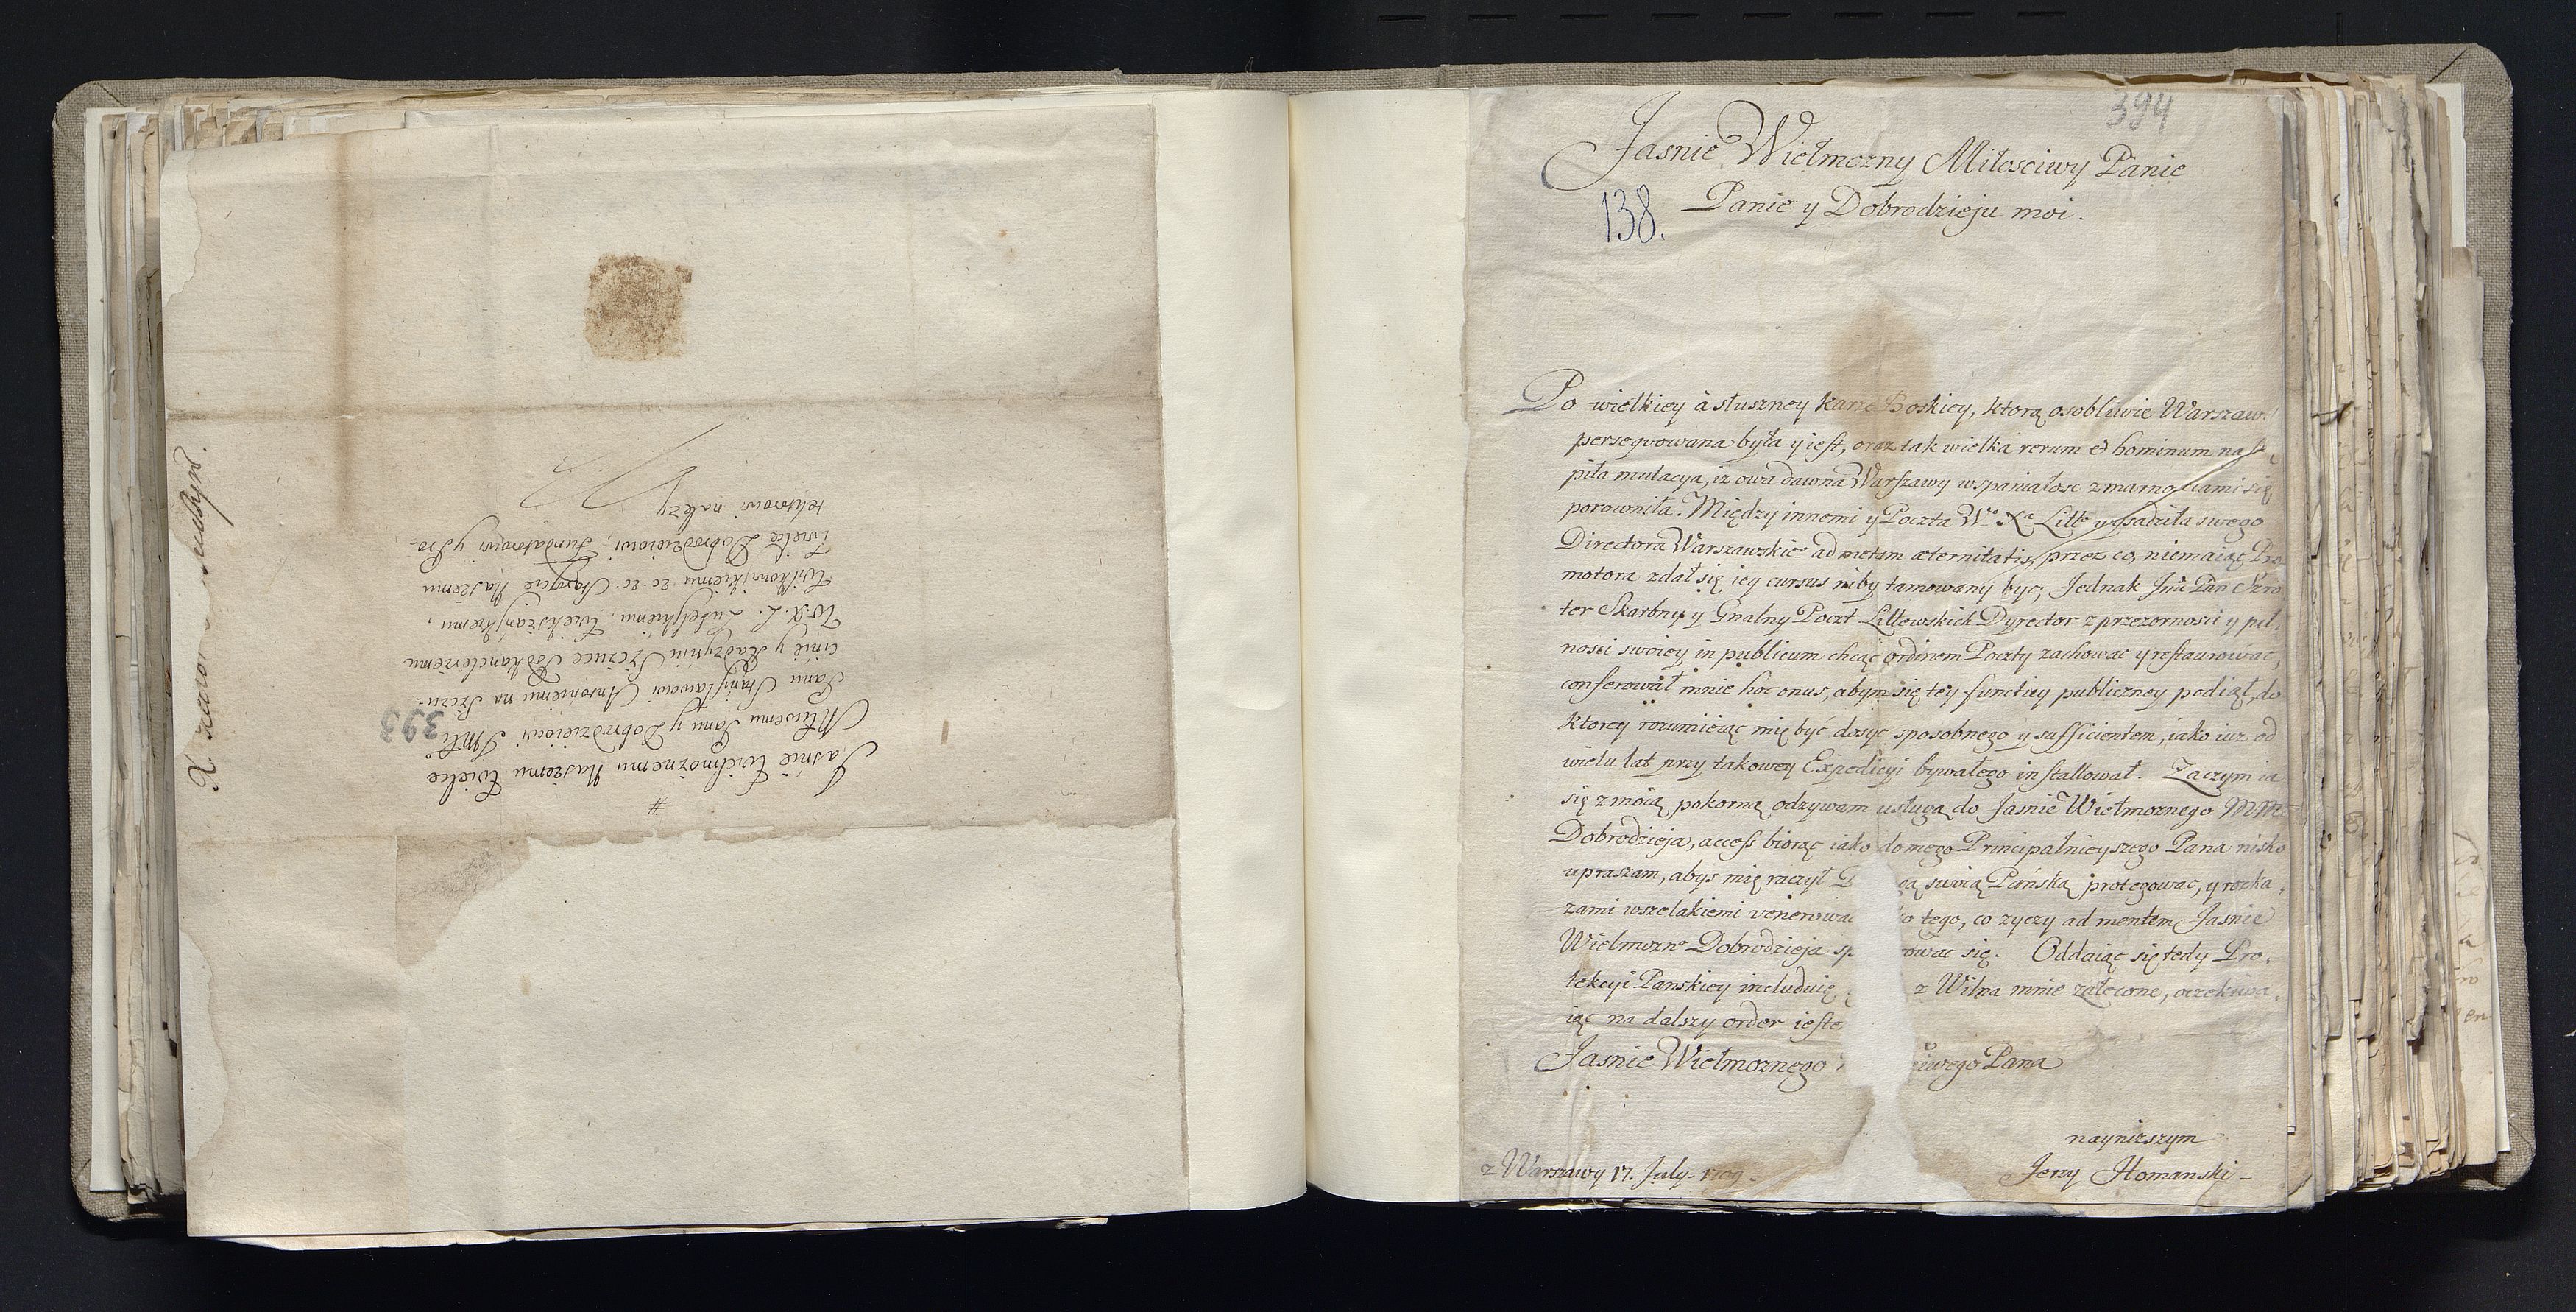 #
Jaśnie Wielmożnemu Naszemu Wielce
Młłiwemu Panu y Dobrodzieiowi
393
Panu Stanisławowi Antoniemu na Szczu-
cinie y Radzyniu Szczuce Podkanclerzemu
W. X. L. Lubelskiemu, Wiekszańskiemu,
Wilkowiskiemu &c. &c. Staroście Naszemu
Wielce Dobrodzieiowi, Fundatorowi y Pro-
tektorowi należy
X.
394
Jasnie Wielmozny Miłosciwy Panie
138. Panie y Dobrodzieju moi.
Po wielkiey à słuszney karze Boskiey, ktorą osobliwie Warszaw
perseqvowana była y iest, oraz tak wielka rerum et hominum nastą
piła mutacya, iz owa dawna Warszawy wspaniałosc z marnosciami się
porownała. Między innemi y Poczta W° Xa Litt° wysadziła swego
Directora Warszawskie° ad metam æternitatis, przez co, niemaiąc Pro
motora zdał się iey cursus niby tamowany byc; Jednak Pan Szro
ter Skarbny y Gnalny Poczt Littewskich Dyrector z przezornosci y pil-
nosci swoiey in publicum chcąc ordinem Poczty zachowac y restaurowac,
conferował mnie hoc onus, abym się tey functiey publiczney podiął, do
ktorey rozumieiąc mię być dosyc sposobnego y sufficientem, iako iuz od
wielu lat przy takowey Expedicyi bywałego installował. Zaczym ia
się z moią pokorną odzywam usługą do Jasnie Wielmoznego MM
Dobrodzieja, access biorąc iako do mego Principalnieyszego Pana nisko
upraszam, abys mię raczył swoią Pańską protegowac, y rozka-
zami wszelakiemi venerowac tego, co zyczy ad mentem Jasnie
Wielmozn° Dobrodzieja sp rowac się. Oddaiąc się tedy Pro-
tekcyi Panskiey includuię z Wilna mnie zalecone, oczekiwa-
iąc na dalszy order ieste
Jasnie Wielmoznego iwego Pana
naynizszym
z Warszawy 17. July. 1709. Jerzy Homanski